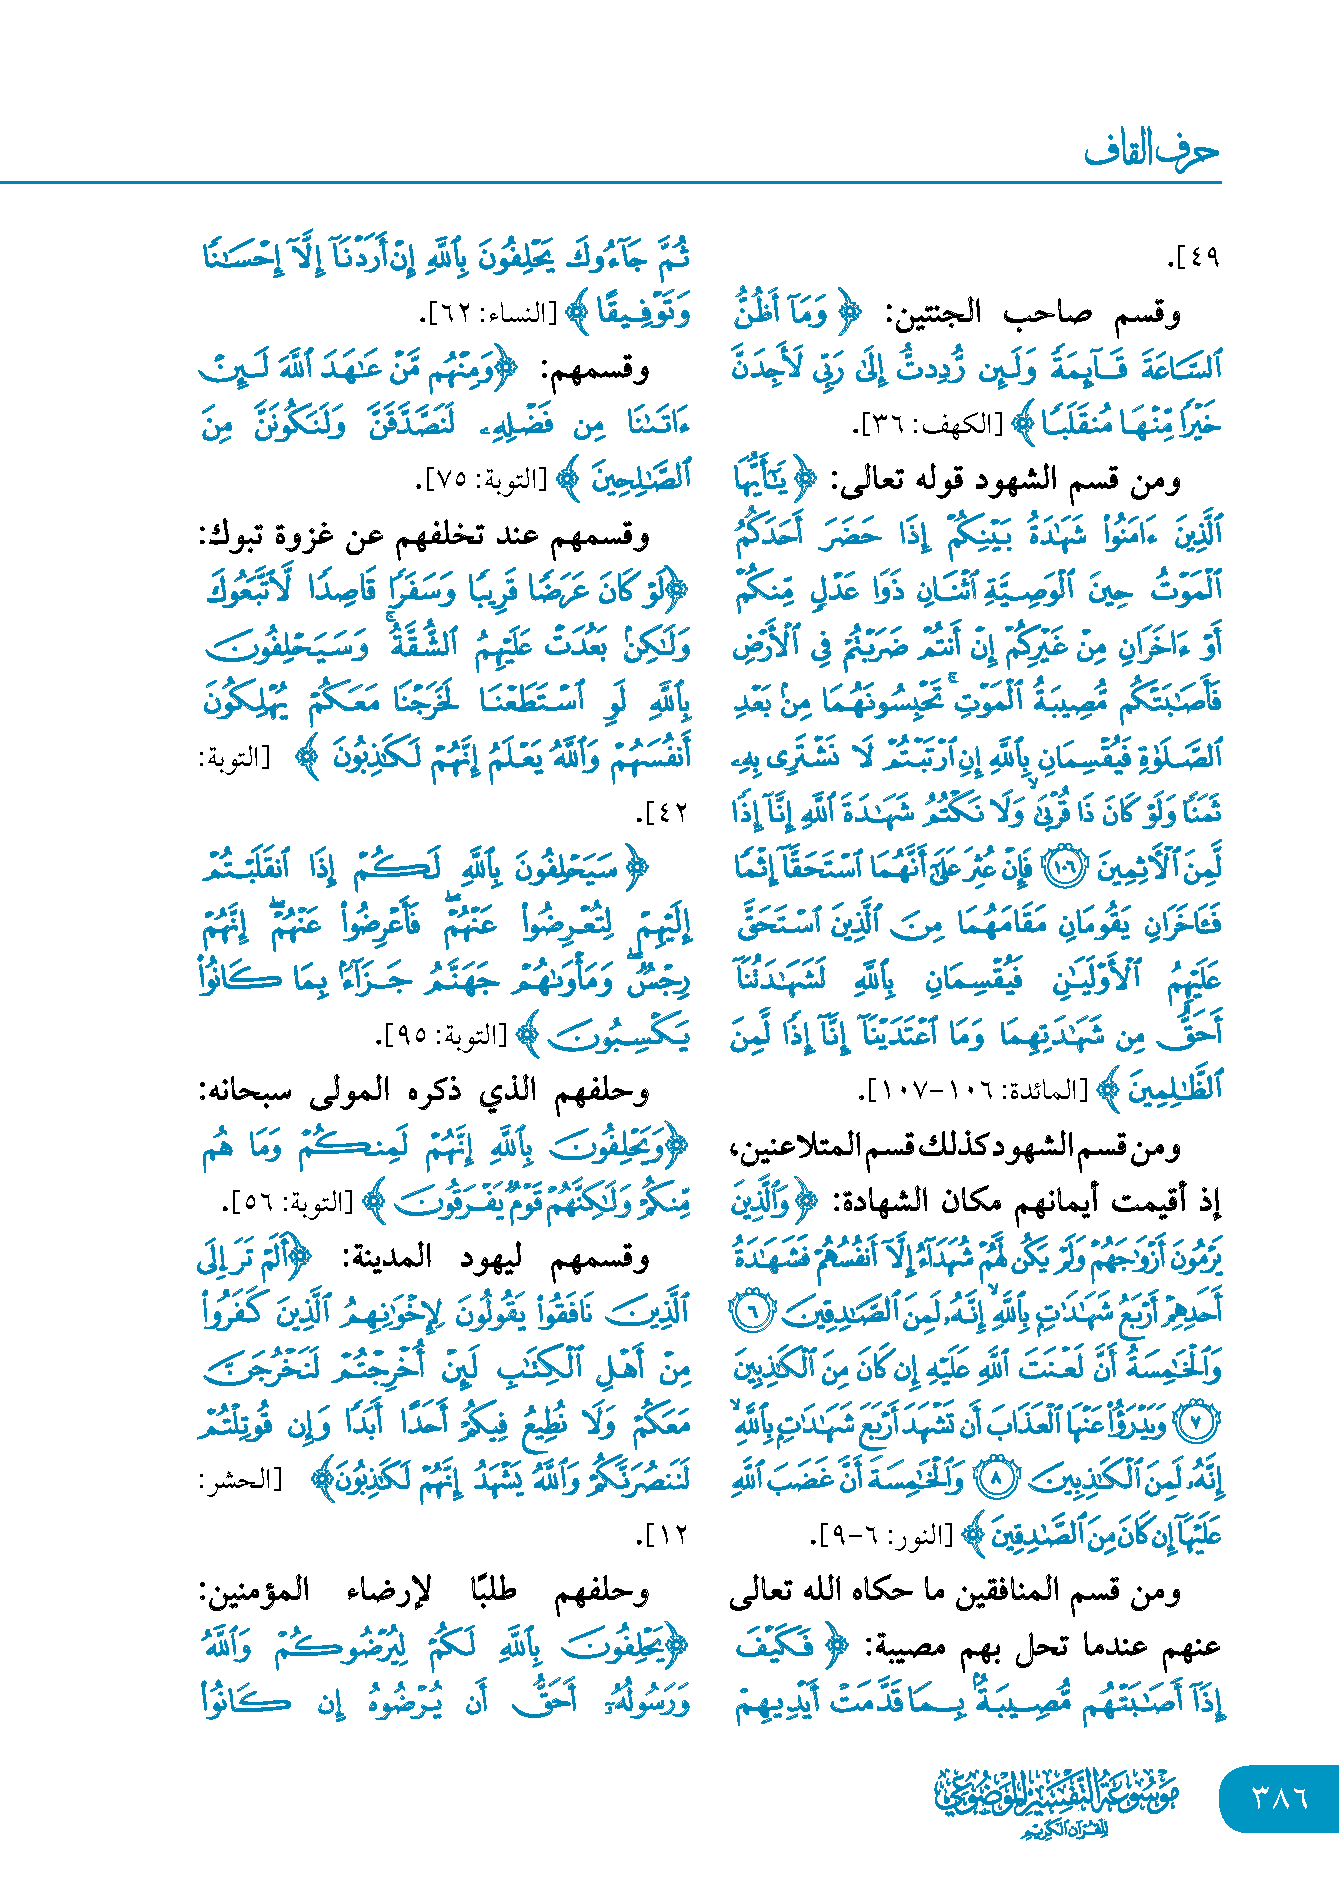 حرف القاف
٤٩].
وقسم صاحب الجنتين: ﴿ وَمَآ أَظُنُّ
ٱلسَّاعَةَ قَآئِمَةً وَلَئِن رُّدِدتُّ إِلَىٰ رَبِّى لَأَجِدَنَّ
خَيْرًا مِّنْهَا مُنقَلَبًا ﴾ [الكهف: ٣٦].
ومن قسم الشهود قوله تعالى: ﴿ يَـٰٓأَيُّهَا
ٱلَّذِينَ ءَامَنُوا۟ شَهَـٰدَةُ بَيْنِكُمْ إِذَا حَضَرَ أَحَدَكُمُ
ٱلْمَوْتُ حِينَ ٱلْوَصِيَّةِ ٱثْنَانِ ذَوَا عَدْلٍ مِّنكُمْ
أَوْ ءَاخَرَانِ مِنْ غَيْرِكُمْ إِنْ أَنتُمْ ضَرَبْتُمْ فِى ٱلْأَرْضِ
فَأَصَـٰبَتْكُم مُّصِيبَةُ ٱلْمَوْتِ ۚ تَحْبِسُونَهُمَا مِنۢ بَعْدِ
ٱلصَّلَوٰةِ فَيُقْسِمَانِ بِٱللَّهِ إِنِ ٱرْتَبْتُمْ لَا نَشْتَرِى بِهِۦ
ثَمَنًا وَلَوْ كَانَ ذَا قُرْبَىٰ ۙ وَلَا نَكْتُمُ شَهَـٰدَةَ ٱللَّهِ إِنَّآ إِذًا
لَّمِنَ ٱلْـَٔاثِمِينَ ۝١٠٦ فَإِنْ عُثِرَ عَلَىٰٓ أَنَّهُمَا ٱسْتَحَقَّآ إِثْمًا
فَـَٔاخَرَانِ يَقُومَانِ مَقَامَهُمَا مِنَ ٱلَّذِينَ ٱسْتَحَقَّ
عَلَيْهِمُ ٱلْأَوْلَيَـٰنِ فَيُقْسِمَانِ بِٱللَّهِ لَشَهَـٰدَتُنَآ
أَحَقُّ مِن شَهَـٰدَتِهِمَا وَمَا ٱعْتَدَيْنَآ إِنَّآ إِذًا لَّمِنَ
ٱلظَّـٰلِمِينَ ﴾ [المائدة: ١٠٦-١٠٧].
ومن قسم الشهود كذلك قسم المتلاعنين،
إذ أقيمت أيمانهم مكان الشهادة: ﴿ وَٱلَّذِينَ
يَرْمُونَ أَزْوَٰجَهُمْ وَلَمْ يَكُن لَّهُمْ شُهَدَآءُ إِلَّآ أَنفُسُهُمْ فَشَهَـٰدَةُ
أَحَدِهِمْ أَرْبَعُ شَهَـٰدَٰتٍۭ بِٱللَّهِ ۙ إِنَّهُۥ لَمِنَ ٱلصَّـٰدِقِينَ ۝٦
وَٱلْخَـٰمِسَةُ أَنَّ لَعْنَتَ ٱللَّهِ عَلَيْهِ إِن كَانَ مِنَ ٱلْكَـٰذِبِينَ
۝٧ وَيَدْرَؤُا۟ عَنْهَا ٱلْعَذَابَ أَن تَشْهَدَ أَرْبَعَ شَهَـٰدَٰتٍۭ بِٱللَّهِ ۙ
إِنَّهُۥ لَمِنَ ٱلْكَـٰذِبِينَ ۝٨ وَٱلْخَـٰمِسَةَ أَنَّ غَضَبَ ٱللَّهِ
عَلَيْهَآ إِن كَانَ مِنَ ٱلصَّـٰدِقِينَ ﴾ [النور: ٦-٩].
ومن قسم المنافقين ما حكاه الله تعالى
عنهم عندما تحل بهم مصيبة: ﴿ فَكَيْفَ
إِذَآ أَصَـٰبَتْهُم مُّصِيبَةٌۢ بِمَا قَدَّمَتْ أَيْدِيهِمْ
ثُمَّ جَآءُوكَ يَحْلِفُونَ بِٱللَّهِ إِنْ أَرَدْنَآ إِلَّآ إِحْسَـٰنًا
وَتَوْفِيقًا ﴾ [النساء: ٦٢].
وقسمهم: ﴿وَمِنْهُم مَّنْ عَـٰهَدَ ٱللَّهَ لَئِنْ
ءَاتَىٰنَا مِن فَضْلِهِۦ لَنَصَّدَّقَنَّ وَلَنَكُونَنَّ مِنَ
ٱلصَّـٰلِحِينَ ﴾ [التوبة: ٧٥].
وقسمهم عند تخلفهم عن غزوة تبوك:
﴿لَوْ كَانَ عَرَضًا قَرِيبًا وَسَفَرًا قَاصِدًا لَّٱتَّبَعُوكَ
وَلَـٰكِنۢ بَعُدَتْ عَلَيْهِمُ ٱلشُّقَّةُ ۚ وَسَيَحْلِفُونَ
بِٱللَّهِ لَوِ ٱسْتَطَعْنَا لَخَرَجْنَا مَعَكُمْ يُهْلِكُونَ
أَنفُسَهُمْ وَٱللَّهُ يَعْلَمُ إِنَّهُمْ لَكَـٰذِبُونَ ﴾ [التوبة:
٤٢].
﴿ سَيَحْلِفُونَ بِٱللَّهِ لَكُمْ إِذَا ٱنقَلَبْتُمْ
إِلَيْهِمْ لِتُعْرِضُوا۟ عَنْهُمْ ۖ فَأَعْرِضُوا۟ عَنْهُمْ ۖ إِنَّهُمْ
رِجْسٌ ۖ وَمَأْوَىٰهُمْ جَهَنَّمُ جَزَآءًۢ بِمَا كَانُوا۟
يَكْسِبُونَ ﴾ [التوبة: ٩٥].
وحلفهم الذي ذكره المولى سبحانه:
﴿وَيَحْلِفُونَ بِٱللَّهِ إِنَّهُمْ لَمِنكُمْ وَمَا هُم
مِّنكُمْ وَلَـٰكِنَّهُمْ قَوْمٌ يَفْرَقُونَ ﴾ [التوبة: ٥٦].
وقسمهم ليهود المدينة: ﴿أَلَمْ تَرَ إِلَى
ٱلَّذِينَ نَافَقُوا۟ يَقُولُونَ لِإِخْوَٰنِهِمُ ٱلَّذِينَ كَفَرُوا۟
مِنْ أَهْلِ ٱلْكِتَـٰبِ لَئِنْ أُخْرِجْتُمْ لَنَخْرُجَنَّ
مَعَكُمْ وَلَا نُطِيعُ فِيكُمْ أَحَدًا أَبَدًا وَإِن قُوتِلْتُمْ
لَنَنصُرَنَّكُمْ وَٱللَّهُ يَشْهَدُ إِنَّهُمْ لَكَـٰذِبُونَ﴾ [الحشر:
١٢].
وحلفهم طلبًا لإرضاء المؤمنين:
﴿يَحْلِفُونَ بِٱللَّهِ لَكُمْ لِيُرْضُوكُمْ وَٱللَّهُ
وَرَسُولُهُۥٓ أَحَقُّ أَن يُرْضُوهُ إِن كَانُوا۟
مَوْسُوعَةُ التَّفْسِيرِ المَوْضُوعِيِّ
لِلْقُرْآنِ الْكَرِيمِ
٣٨٦